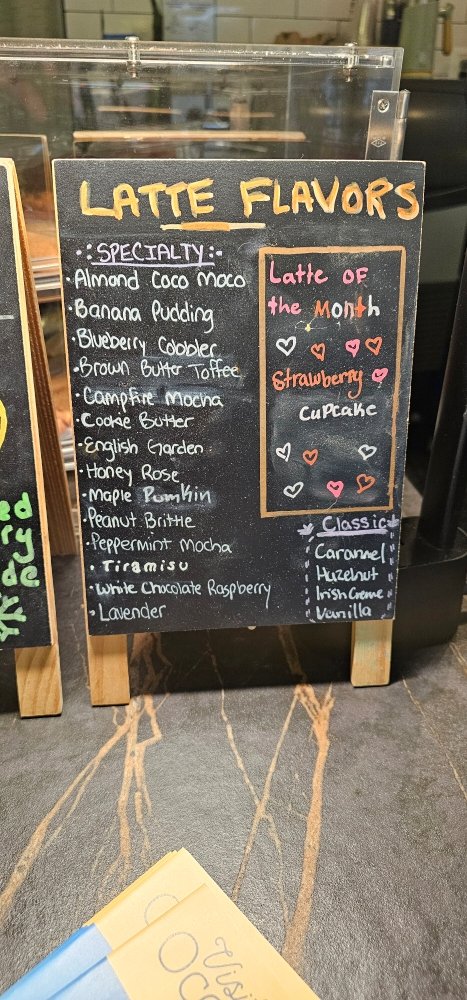 LATTE FLAVORS
SPECIALTY:
Almond Coco Moco
Banana Pudding
Blueberry Cobbler
Brown Butter Toffee
Campfire Mocha
Cookie Butter
English Garden
Honey Rose
Maple Pumkin
Peanut Brittle
Peppermint Mocha
Tiramisu
White Chocolate Raspberry
Lavender
Latte OF
the Month
Strawberry
CuPcake
Classic
Caramel
Hazelnut
Irish Creme
Vanilla
ed
ry
de
Visi